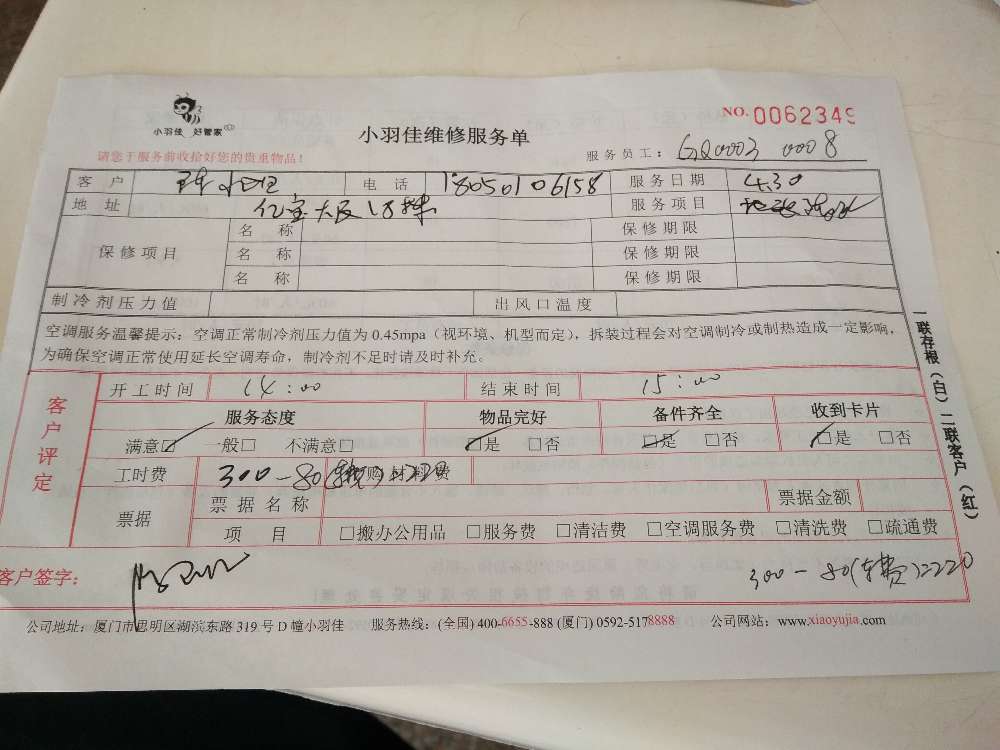 小羽佳 好管家
NO. 0062349
小羽佳维修服务单
请您于服务前收拾好您的贵重物品！
服务员工： GQ0003 0008
客户 电话 18050106158 服务日期 4.30
地址 亿宝大厦 服务项目
保修项目 名称 保修期限
名称 保修期限
名称 保修期限
制冷剂压力值 出风口温度
空调服务温馨提示：空调正常制冷剂压力值为 0.45mpa（视环境、机型而定），拆装过程会对空调制冷或制热造成一定影响，
为确保空调正常使用延长空调寿命，制冷剂不足时请及时补充。
客户评定
开工时间 14:00 结束时间 15:00
服务态度 物品完好 备件齐全 收到卡片
满意☑ 一般□ 不满意□ ☑是 □否 ☑是 □否 ☑是 □否
工时费 300-80 购材料费
票据 票据名称 票据金额
项目 □搬办公用品 □服务费 □清洁费 □空调服务费 □清洗费 □疏通费
客户签字：
300-80(车费)=220
公司地址：厦门市思明区湖滨东路 319 号 D 幢小羽佳 服务热线：(全国) 400-6655-888 (厦门) 0592-5178888 公司网站：www.xiaoyujia.com
一联存根（白）二联客户（红）